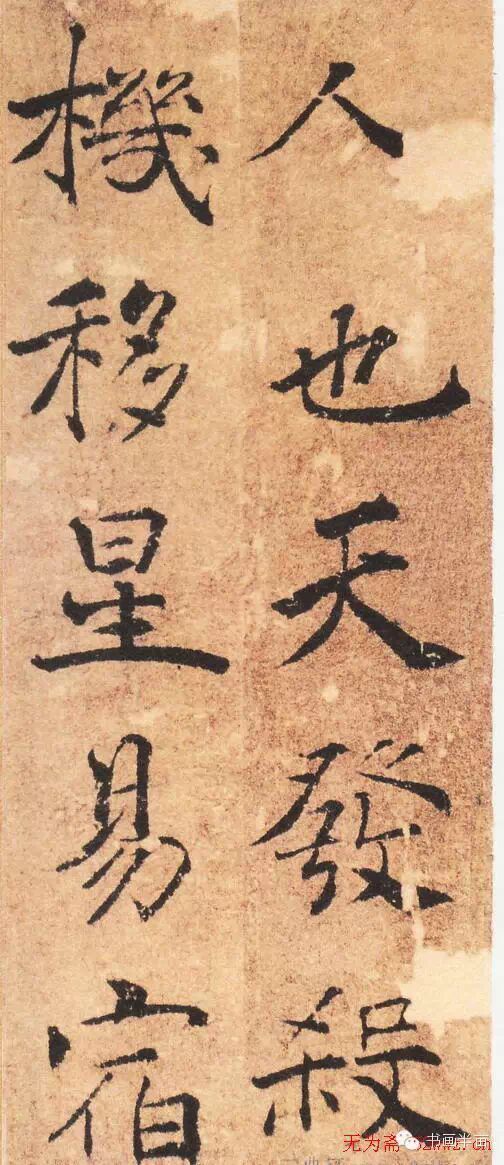 人也天發殺
機移星易宿
无为斋
书画半画